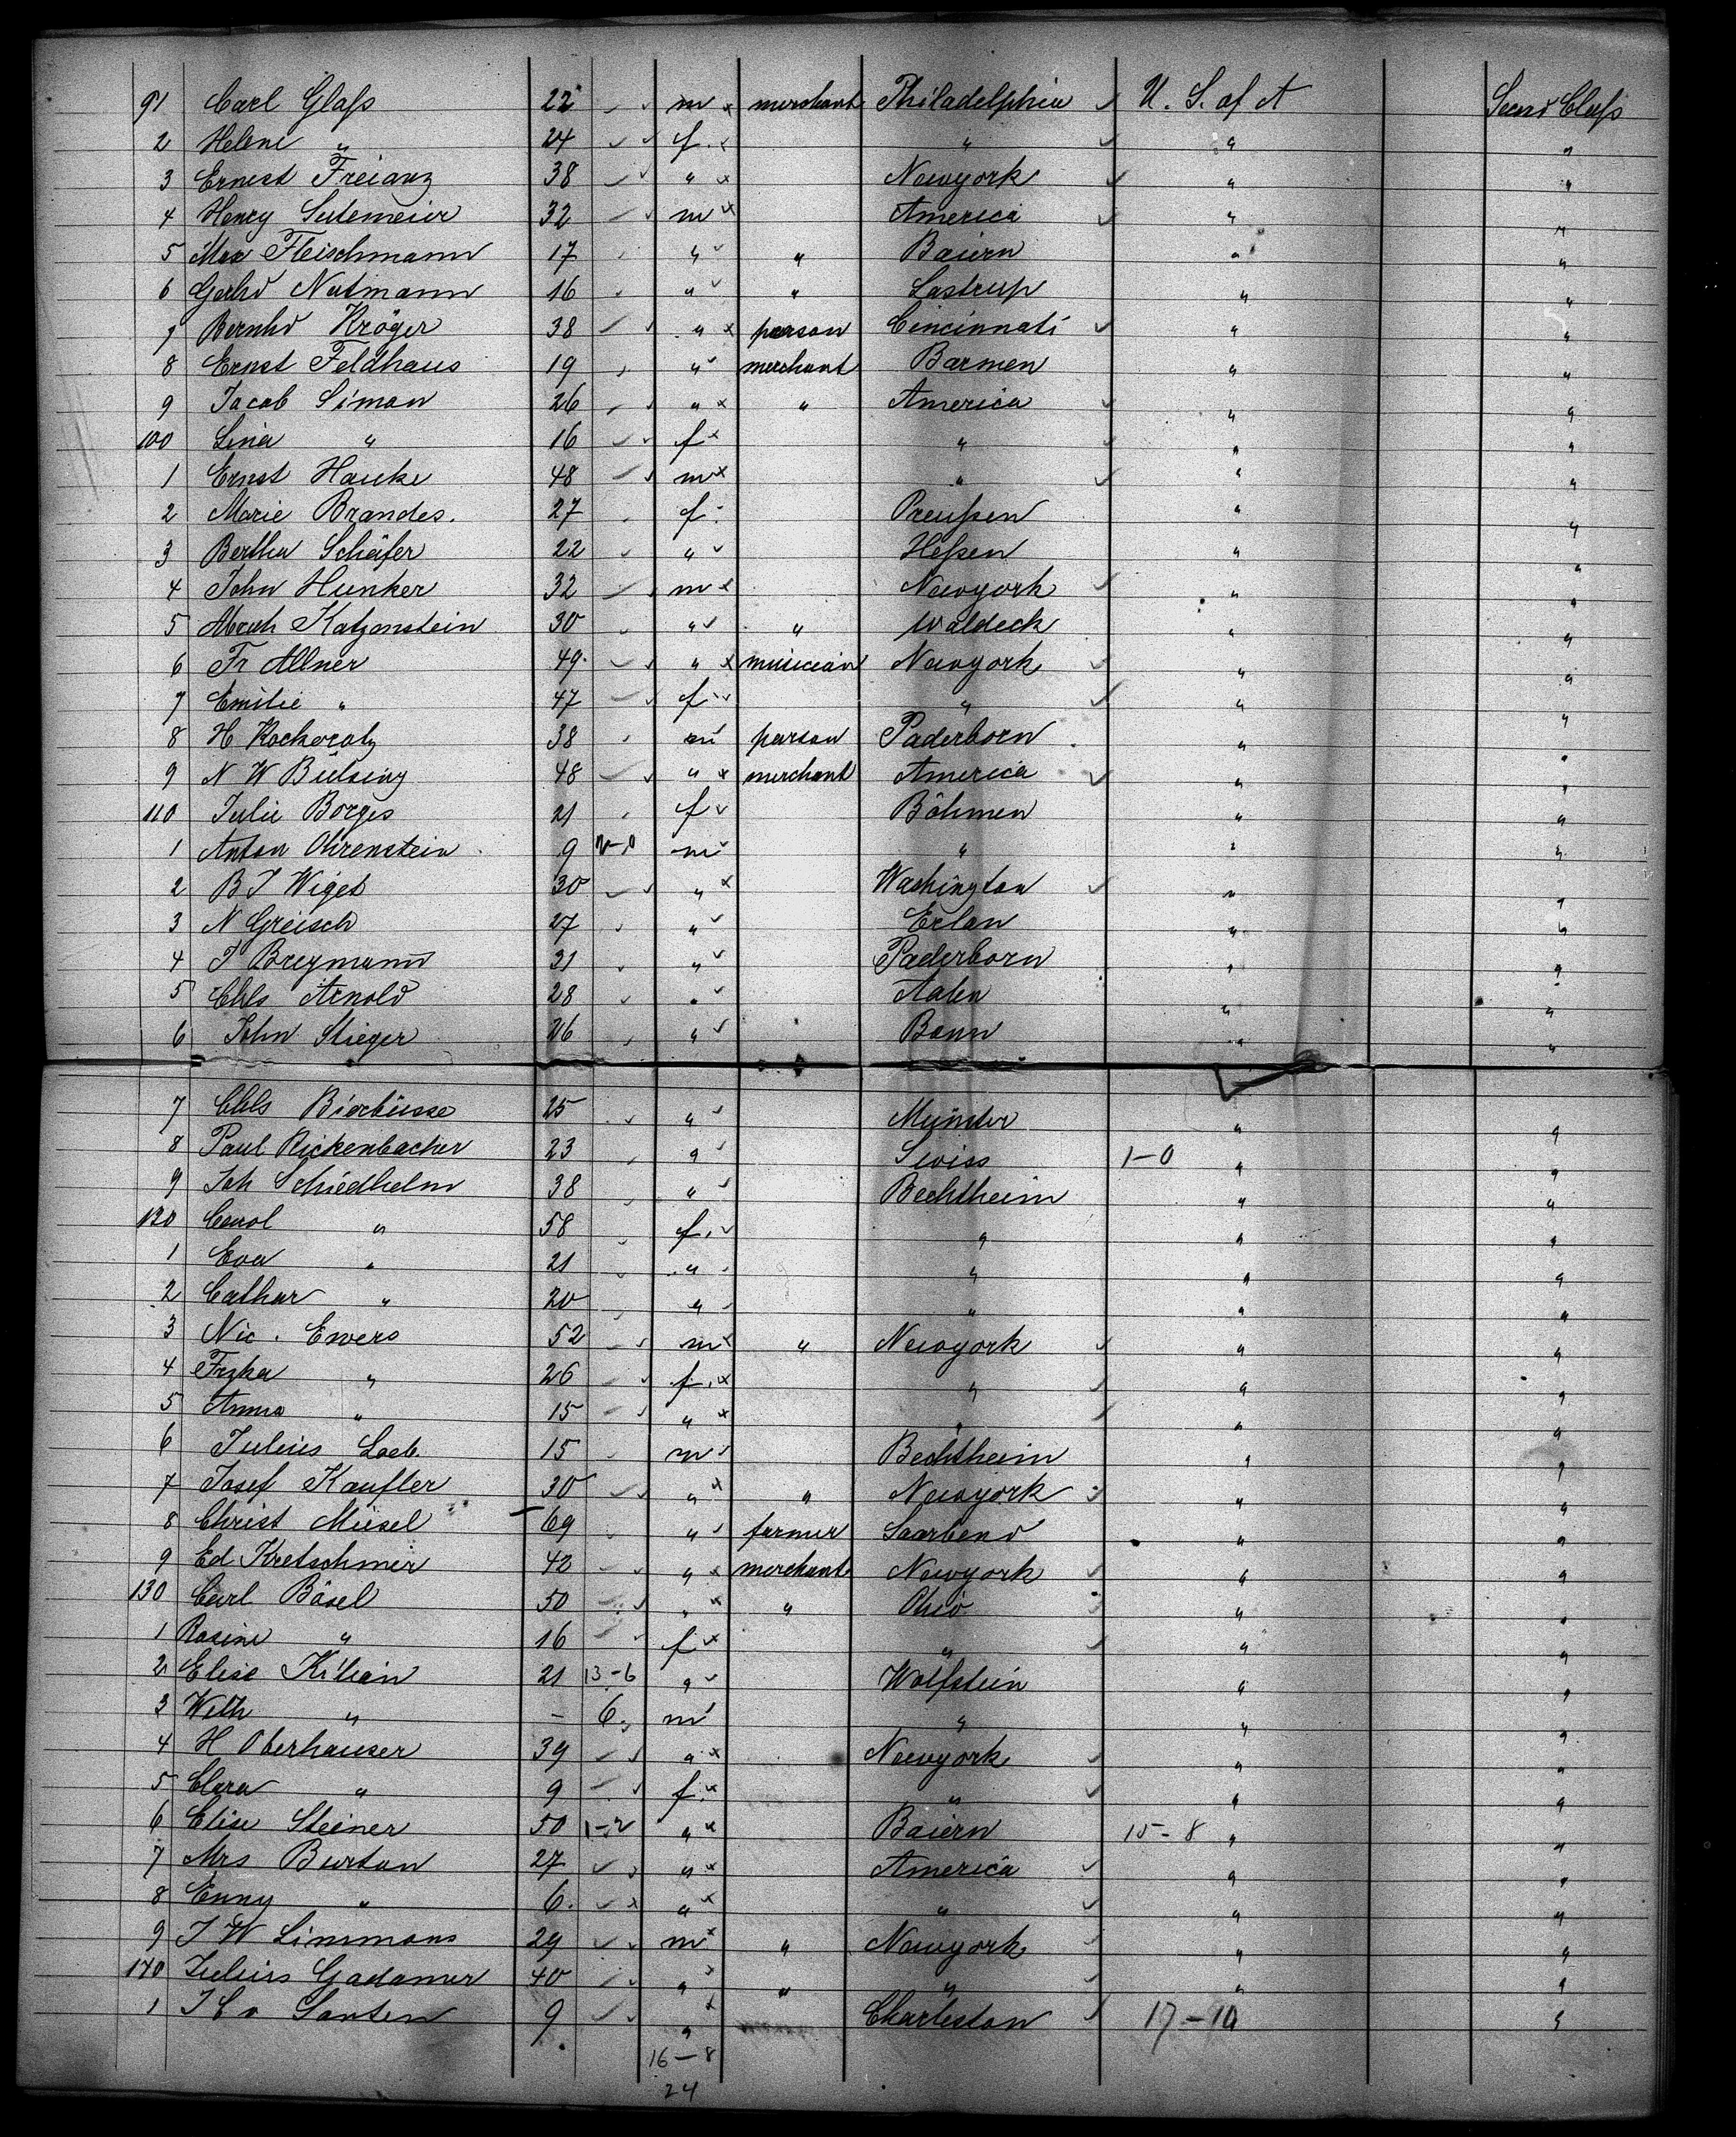 91 Carl Glaß 22 m merchant Philadelphia U. S. of A Second Claß
2 Helene " 24 f. " " "
3 Ernest Freianz 38 " Newyork " "
4 Henry Sutemeier 32 m America " "
5 Max Fleischmann 17 " " Baiern " "
6 Gerhd Nutmann 16 " " Lastrup " "
7 Bernhd Kröger 38 " parson Cincinnati " "
8 Ernst Feldhaus 19 " merchant Barmen " "
9 Jacob Simon 26 " " America " "
100 Lina " 16 f " " "
1 Ernst Hauke 48 m " " "
2 Marie Brandes. 27 f. Preußen " "
3 Bertha Schäfer 22 " Heßen " "
4 John Hunker 32 m Newyork " "
5 Abrah Katzenstein 30 " " Waldeck " "
6 Fr Allner 49. " musician Newyork " "
7 Emilie " 47 f " " "
8 H 38 m parson Paderborn " "
9 N W Bülsing 48 " merchant America " "
110 Julie Borges 21 f Böhmen " "
1 Anton Ohrenstein 9 2-0 m " " "
2 B J Wiget 30 " Washington " "
3 N Greisch 27 " Erlan " "
4 J Bregmann 31 " Paderborn " "
5 Chls Arnold 28 " Aalen " "
6 John Stieger 26 " Bonn " "
7 Chls Bierbüsse 25 " Münster " "
8 Paul Rickenbacher 23 " Swiss 1-0 " "
9 Joh Schiedhelm 38 " Bechtheim " "
120 Carol " 58 f. " " "
1 Eva " 21 " " " "
2 Cathar " 20 " " " "
3 Nic. Ewers 52 m " Newyork " "
4 Frzka " 26 f. " " "
5 Anna " 15 " " " "
6 Julius Loeb 15 m Bechtheim " "
7 Josef Kaufler 30 " " Newyork " "
8 Christ Miesel 69 " farmer " "
9 Ed Kretschmer 42 " merchant Newyork " "
130 Carl Bösel 50 " " Ohio " "
1 Rosine " 16 f " " "
2 Elise Kilian 21 13-6 " Wolfstein " "
3 Wilh " - 6. m " " "
4 H Oberhauser 39 " Newyork " "
5 Clara " 9 f. " " "
6 Elise Steiner 50 1-2 " Baiern 15-8 " "
7 Mrs Burton 27 " America " "
8 Enny " 6. " " " "
9 J W Simmons 29 m " Newyork " "
140 Julius Gadamer 40 " " " " "
1 J C v Santen 9 " Charleston 17-10 "
16-8
24